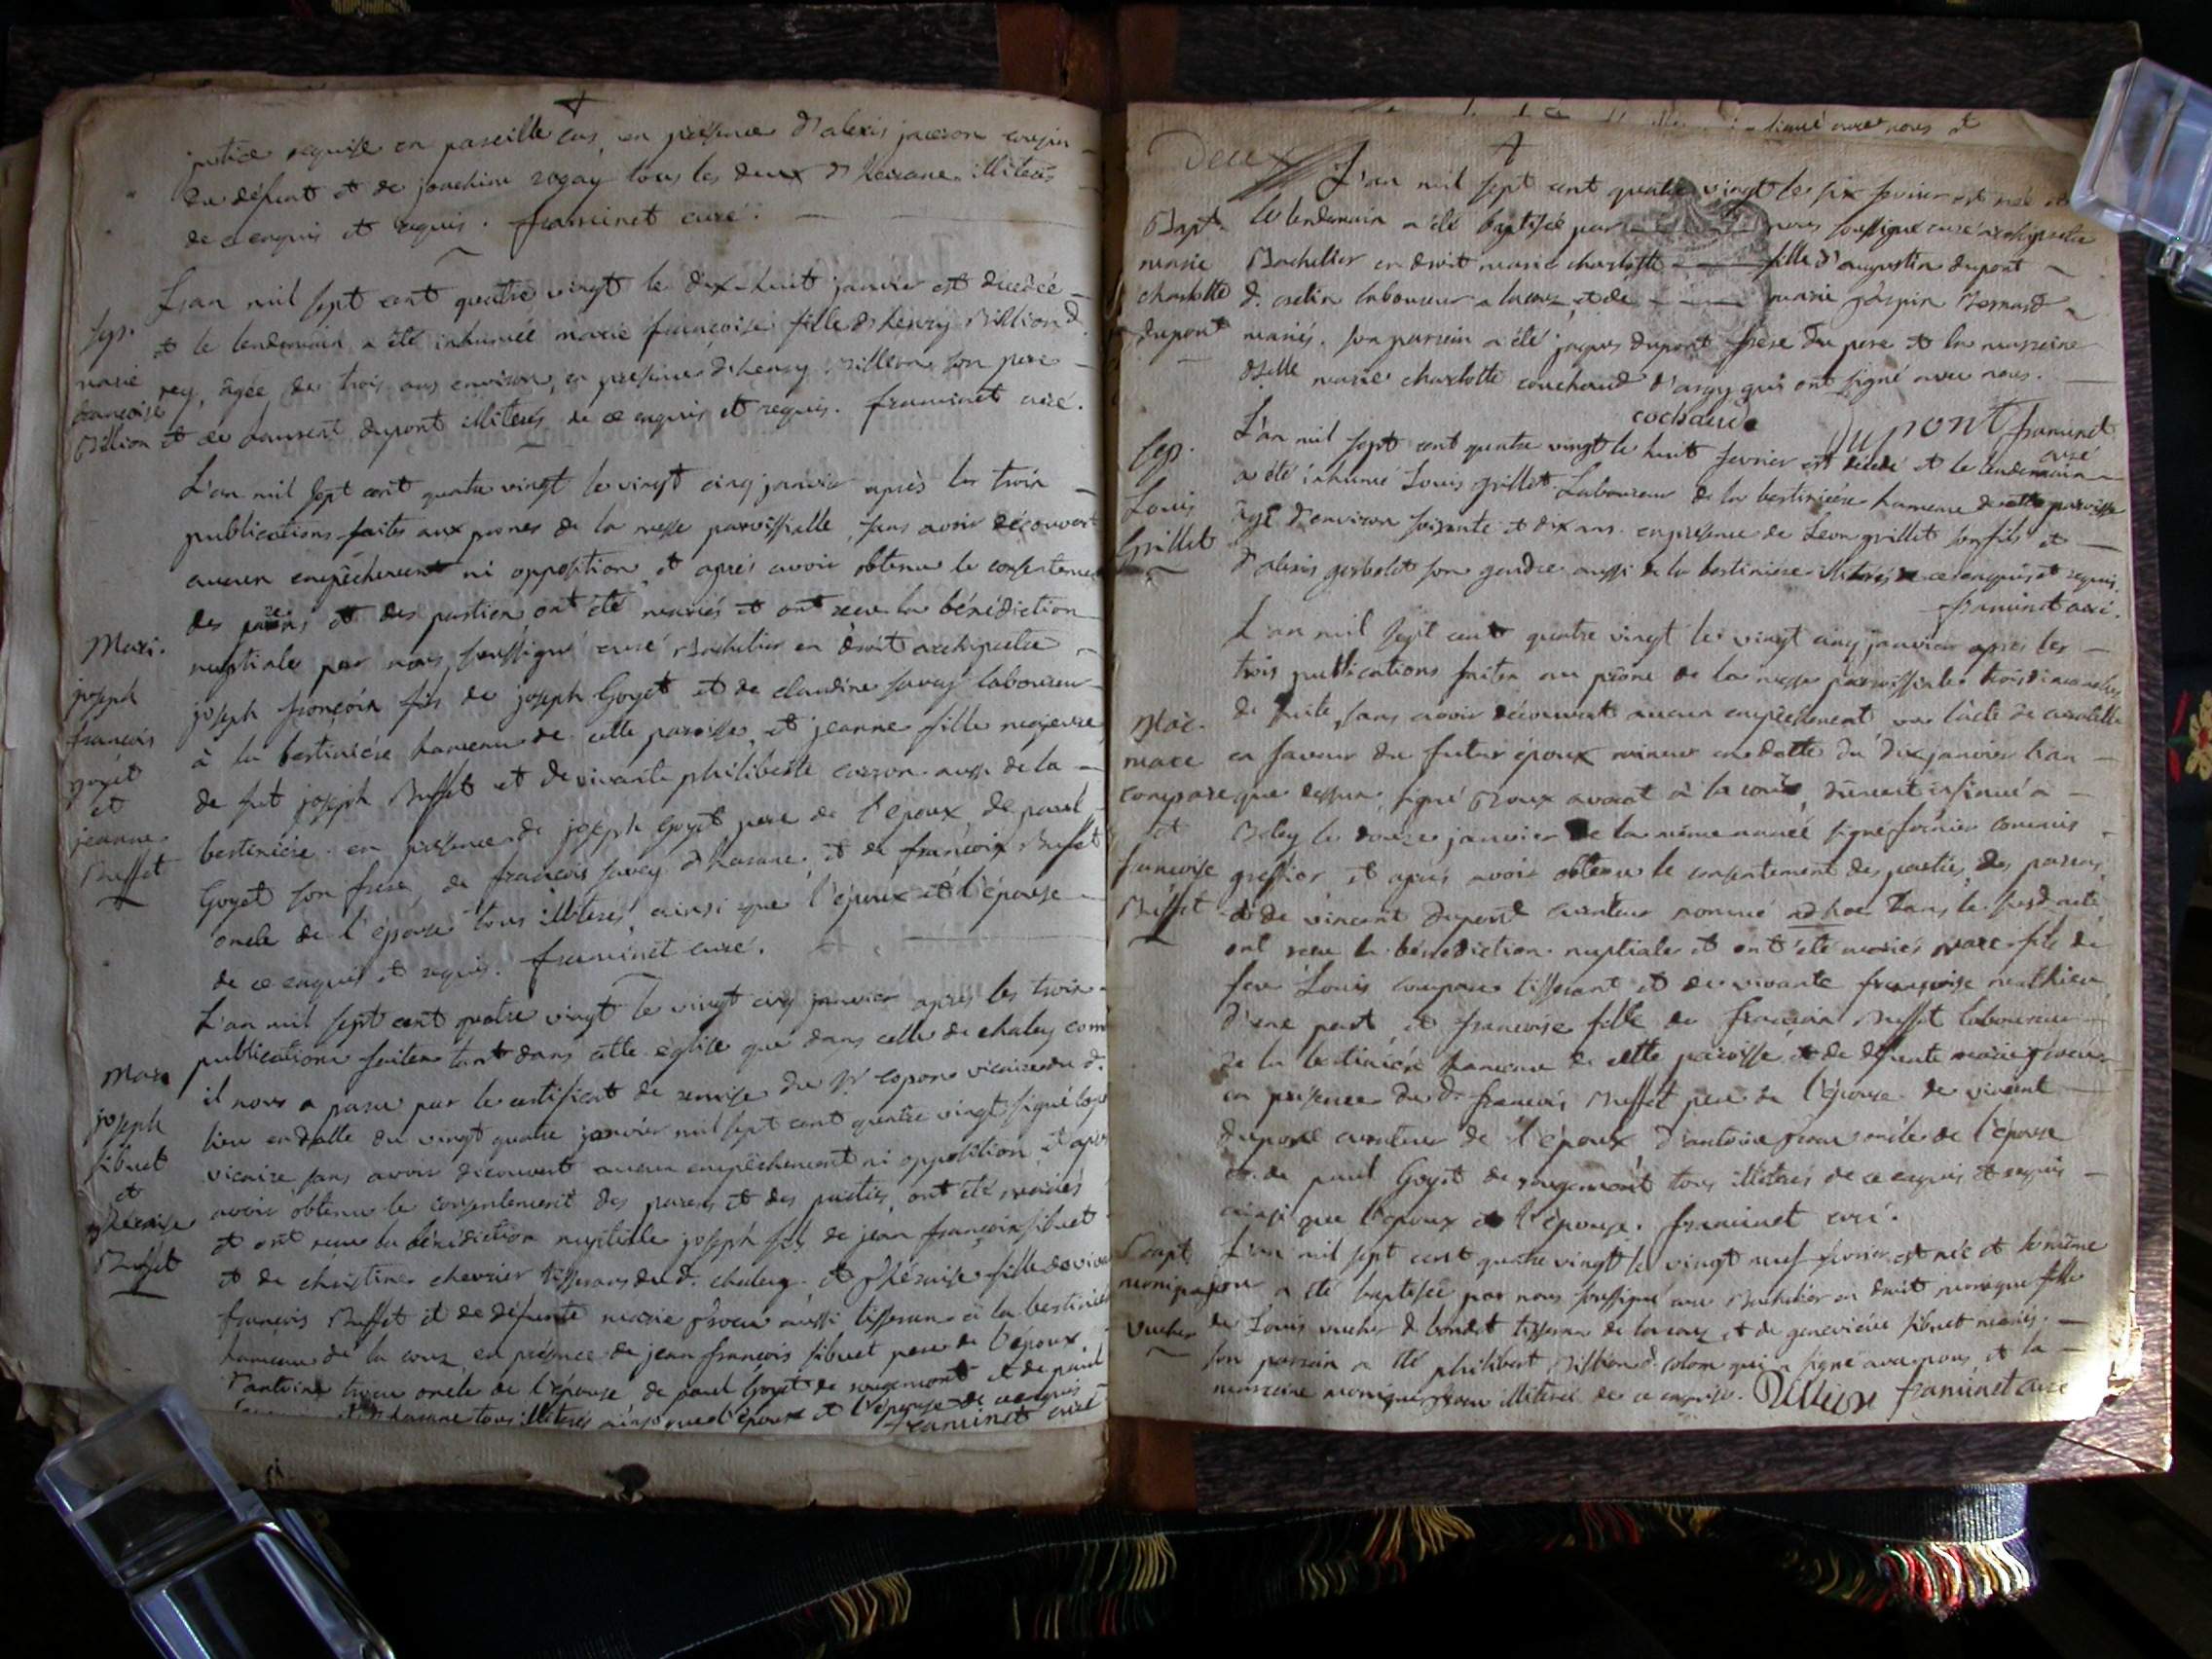 justice requise en pareille cas, en présence d'alexis jacron cousin
du défunt et de joachim rogay tous les deux d'hauane illiterés
de ce enquis et requis. framinet curé.
L'an mil sept cent quatre vingt le dix-huit janvier est decedée
et le lendemain a été inhumée marie françoise fille d'henry Billion d.
rey, âgée de trois ans environ, en presence d'henry Billion son pere
et de laurent dupont illiterés de ce enquis et requis. framinet curé.
sep.
marie
françoise
Billion
L'an mil sept cent quatre vingt le vingt cinq janvier après les trois
publications faites aux prones de la messe paroissialle, sans avoir découvert
aucun empêchement ni opposition et après avoir obtenu le consentement
des parens et des parties, ont été mariés et ont receu la bénédiction
nuptiale par nous soussigné curé Bachelier en droit archiprêtre
joseph françois fils de joseph Goyet et de claudine savey laboureur
à la bertinière hameau de cette paroisse, et jeanne fille majeure
de fut joseph Buffet et de vivante philiberte carron aussi de la
bertinière. en presence de joseph Goyet pere de l'époux, de paul
Goyet son frere, de françois savey d'hauane, et de françois Buffet
oncle de l'épouse tous illiterés, ainsi que l'époux et l'épouse
de ce enquis et requis. framinet curé.
Mari.
joseph
françois
goyet
et
jeanne
Buffet
L'an mil sept cent quatre vingt le vingt cinq janvier après les trois
publications faites tant dans cette église que dans celle de chaley com
il nous a paru par le certificat de remise du Sr copon vicaire du d.
lieu en datte du vingt quatre janvier mil sept cent quatre vingt signé copon
vicaire sans avoir découvert aucun empêchement ni opposition, et après
avoir obtenu le consentement des parens et des parties, ont été mariés
et ont receu la bénédiction nuptialle joseph fils de jean françois sibuet
et de christine chevrier tisserans du d. chaley, et phéraise fille de vivant
françois Buffet et de défunte marie prveu aussi tisseran à la bertinière
hameau de la couz, en présence de jean françois sibuet pere de l'époux,
d'antoine oncle de l'épouse de paul Goyet de rougemont et de paul
d'hauane tous illiterés ainsi que l'époux et l'épouse de ce enquis
framinet curé
Mari
joseph
sibuet
et
Buffet
L'an mil sept cent quatre vingt le six fevrier est née et
le lendemain a été baptisée par nous soussigné curé archiprêtre
Bachelier en droit marie charlotte fille d'augustin dupont
d. catlin laboureur a lacouz, et de marie gaspin Bernard
mariés. son parrain a été jaques dupont frère du pere et la marreine
dselle marie charlotte couchoud d'argy qui ont signé avec nous.
cochaud dupont framinet
curé
Bapt.
marie
charlotte
dupont
L'an mil sept cent quatre vingt le huit fevrier est decedé et le lendemain
a été inhumé Louis grillet Laboureur de la bertinière hameau de cette paroisse
âgé d'environ soixante et dix ans. en presence de Leon grillet son fils et
d'alexis gerbelot son gendre aussi de la bertiniere illiterés de ce enquis et requis.
framinet curé.
Sep.
Louis
Grillet
L'an mil sept cent quatre vingt le vingt cinq janvier après les
trois publications faites au prône de la messe paroissiale trois dimanches
de suite, sans avoir découvert aucun empêchement, vu l'acte de curatelle
en faveur du futur époux mineur en datte du dix janvier l'an
que dessus, signé Roux avocat à la cour, dûment insinué à
Beley le douze janvier de la même année signé fornier commis
greffier, et après avoir obtenu le consentement des parties, des parens,
et de vincent dupont curateur nommé ad hoc dans le susd. acte
ont receu la bénédiction nuptiale et ont été mariés marc fils de
feu Louis compare tisserant et de vivante françoise mathieu
d'une part et françoise fille de françois Buffet laboureur
de la bertinière hameau de cette paroisse et de défunte marie
en présence du d. françois Buffet pere de l'épouse de vincent
dupont curateur de l'époux d'antoine oncle de l'épouse
et de paul Goyet de rougemont tous illiterés de ce enquis et requis
ainsi que l'époux et l'épouse. framinet curé.
Mar.
marc
compare
et
françoise
Buffet
L'an mil sept cent quatre vingt le vingt neuf fevrier est née et le même
jour a été baptisée par nous soussigné curé Bachelier en droit monique fille
de Louis vucher d. bondet tisseran de lacouz et de geneviève sibuet mariés.
son parrain a été philibert Billion d. colom qui a signé avec nous, et la
marreine monique illiterée de ce enquise. Billion framinet curé
Bapt.
monique
vucher